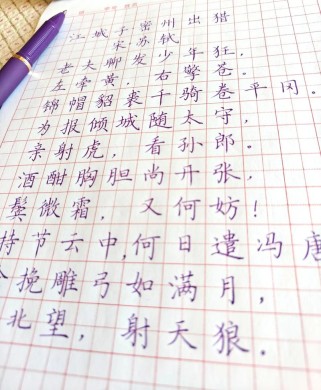 江城子密州出猎
宋苏轼
老夫聊发少年狂,
左牵黄,右擎苍。
锦帽貂裘千骑卷平冈。
为报倾城随太守,
亲射虎,看孙郎。
酒酣胸胆尚开张,
鬓微霜,又何妨!
持节云中,何日遣冯唐
挽雕弓如满月,
北望,射天狼。